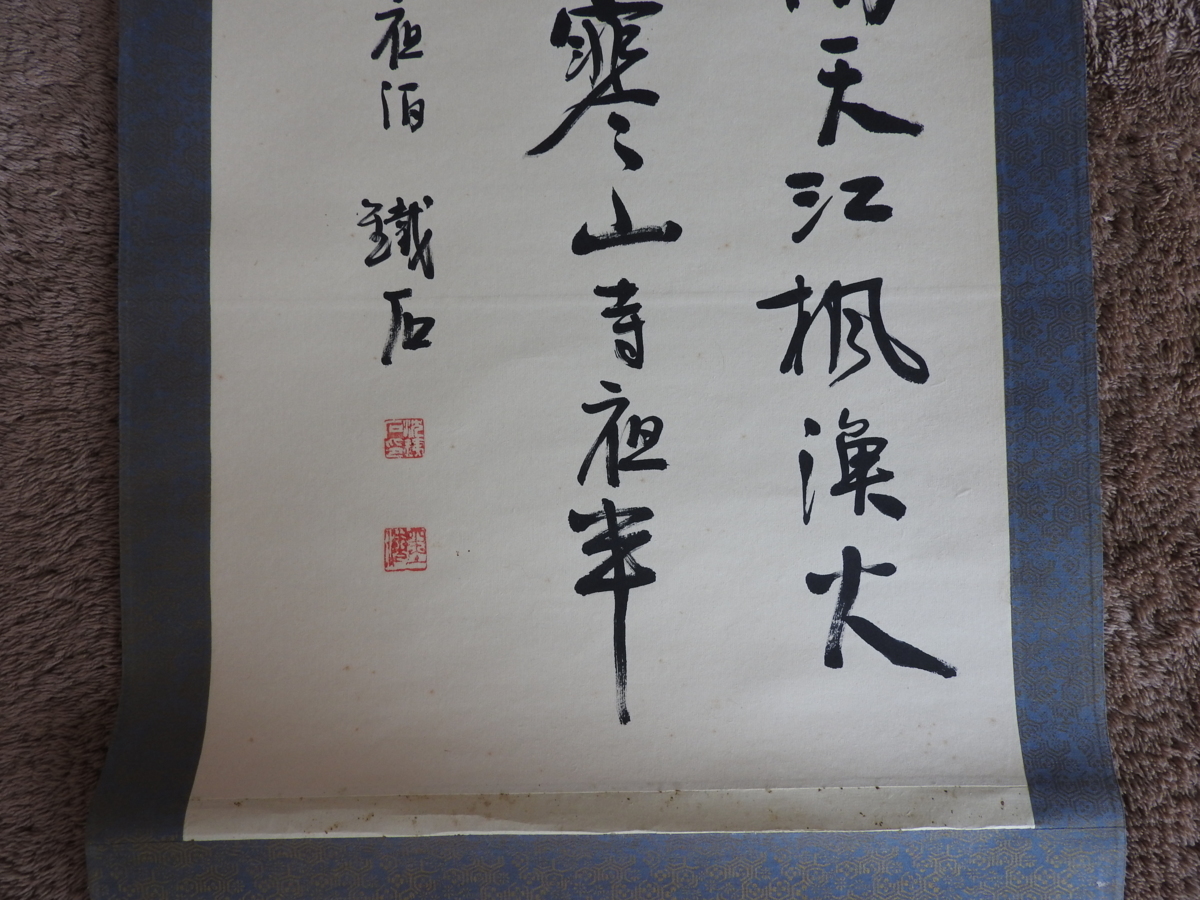 天江楓漁火
寒山寺夜半
夜泊 鐵石